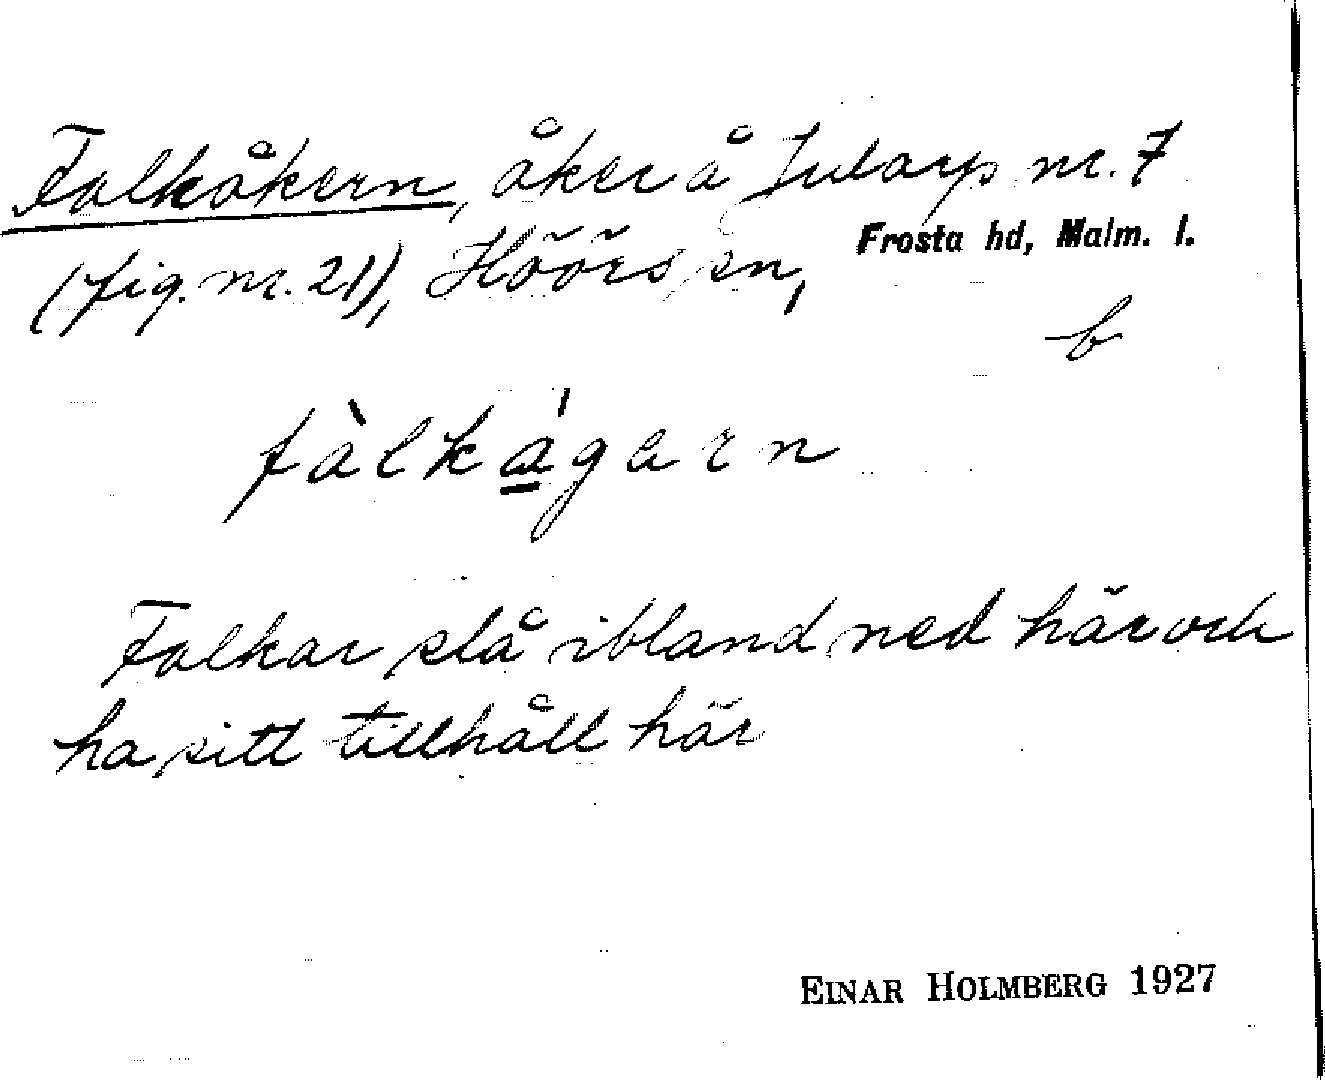 Falkåkern, åker å Jularp nr. 7
(fig. nr. 21), Höörs sn, Frosta hd, Malm. l.
b
fàlka̲̍garn
Falkar slå ibland ned här och
ha sitt tillhåll här
EINAR HOLMBERG 1927